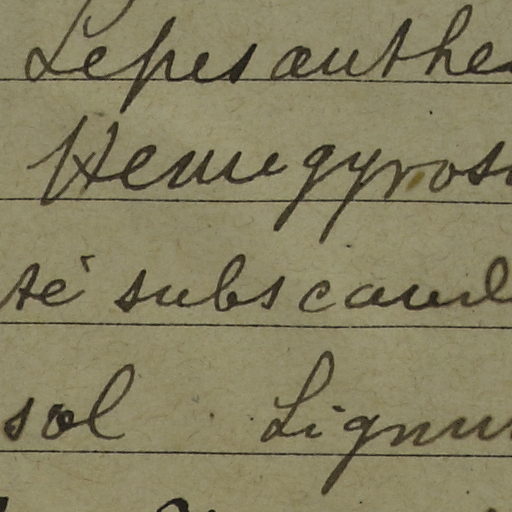 Lepisanthe
Hemigyros
té subscand
sol Lignu